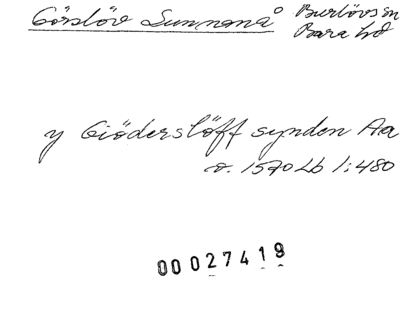 Görslöv Sunnanå Burlövs sn
Bara hd
y Giöderslöff synden Aa
o. 1570 Lb 1:480
00027419